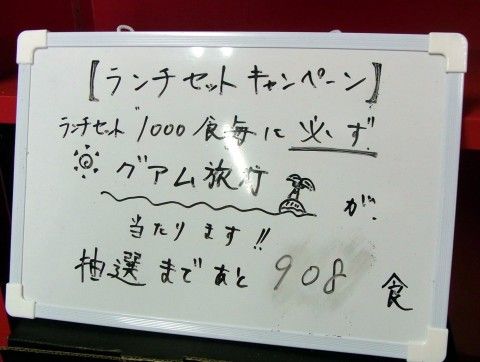 【ランチセットキャンペーン】
ランチセット 1000食毎に必ず
グアム旅行 が、
当たります!!
抽選まであと 908 食